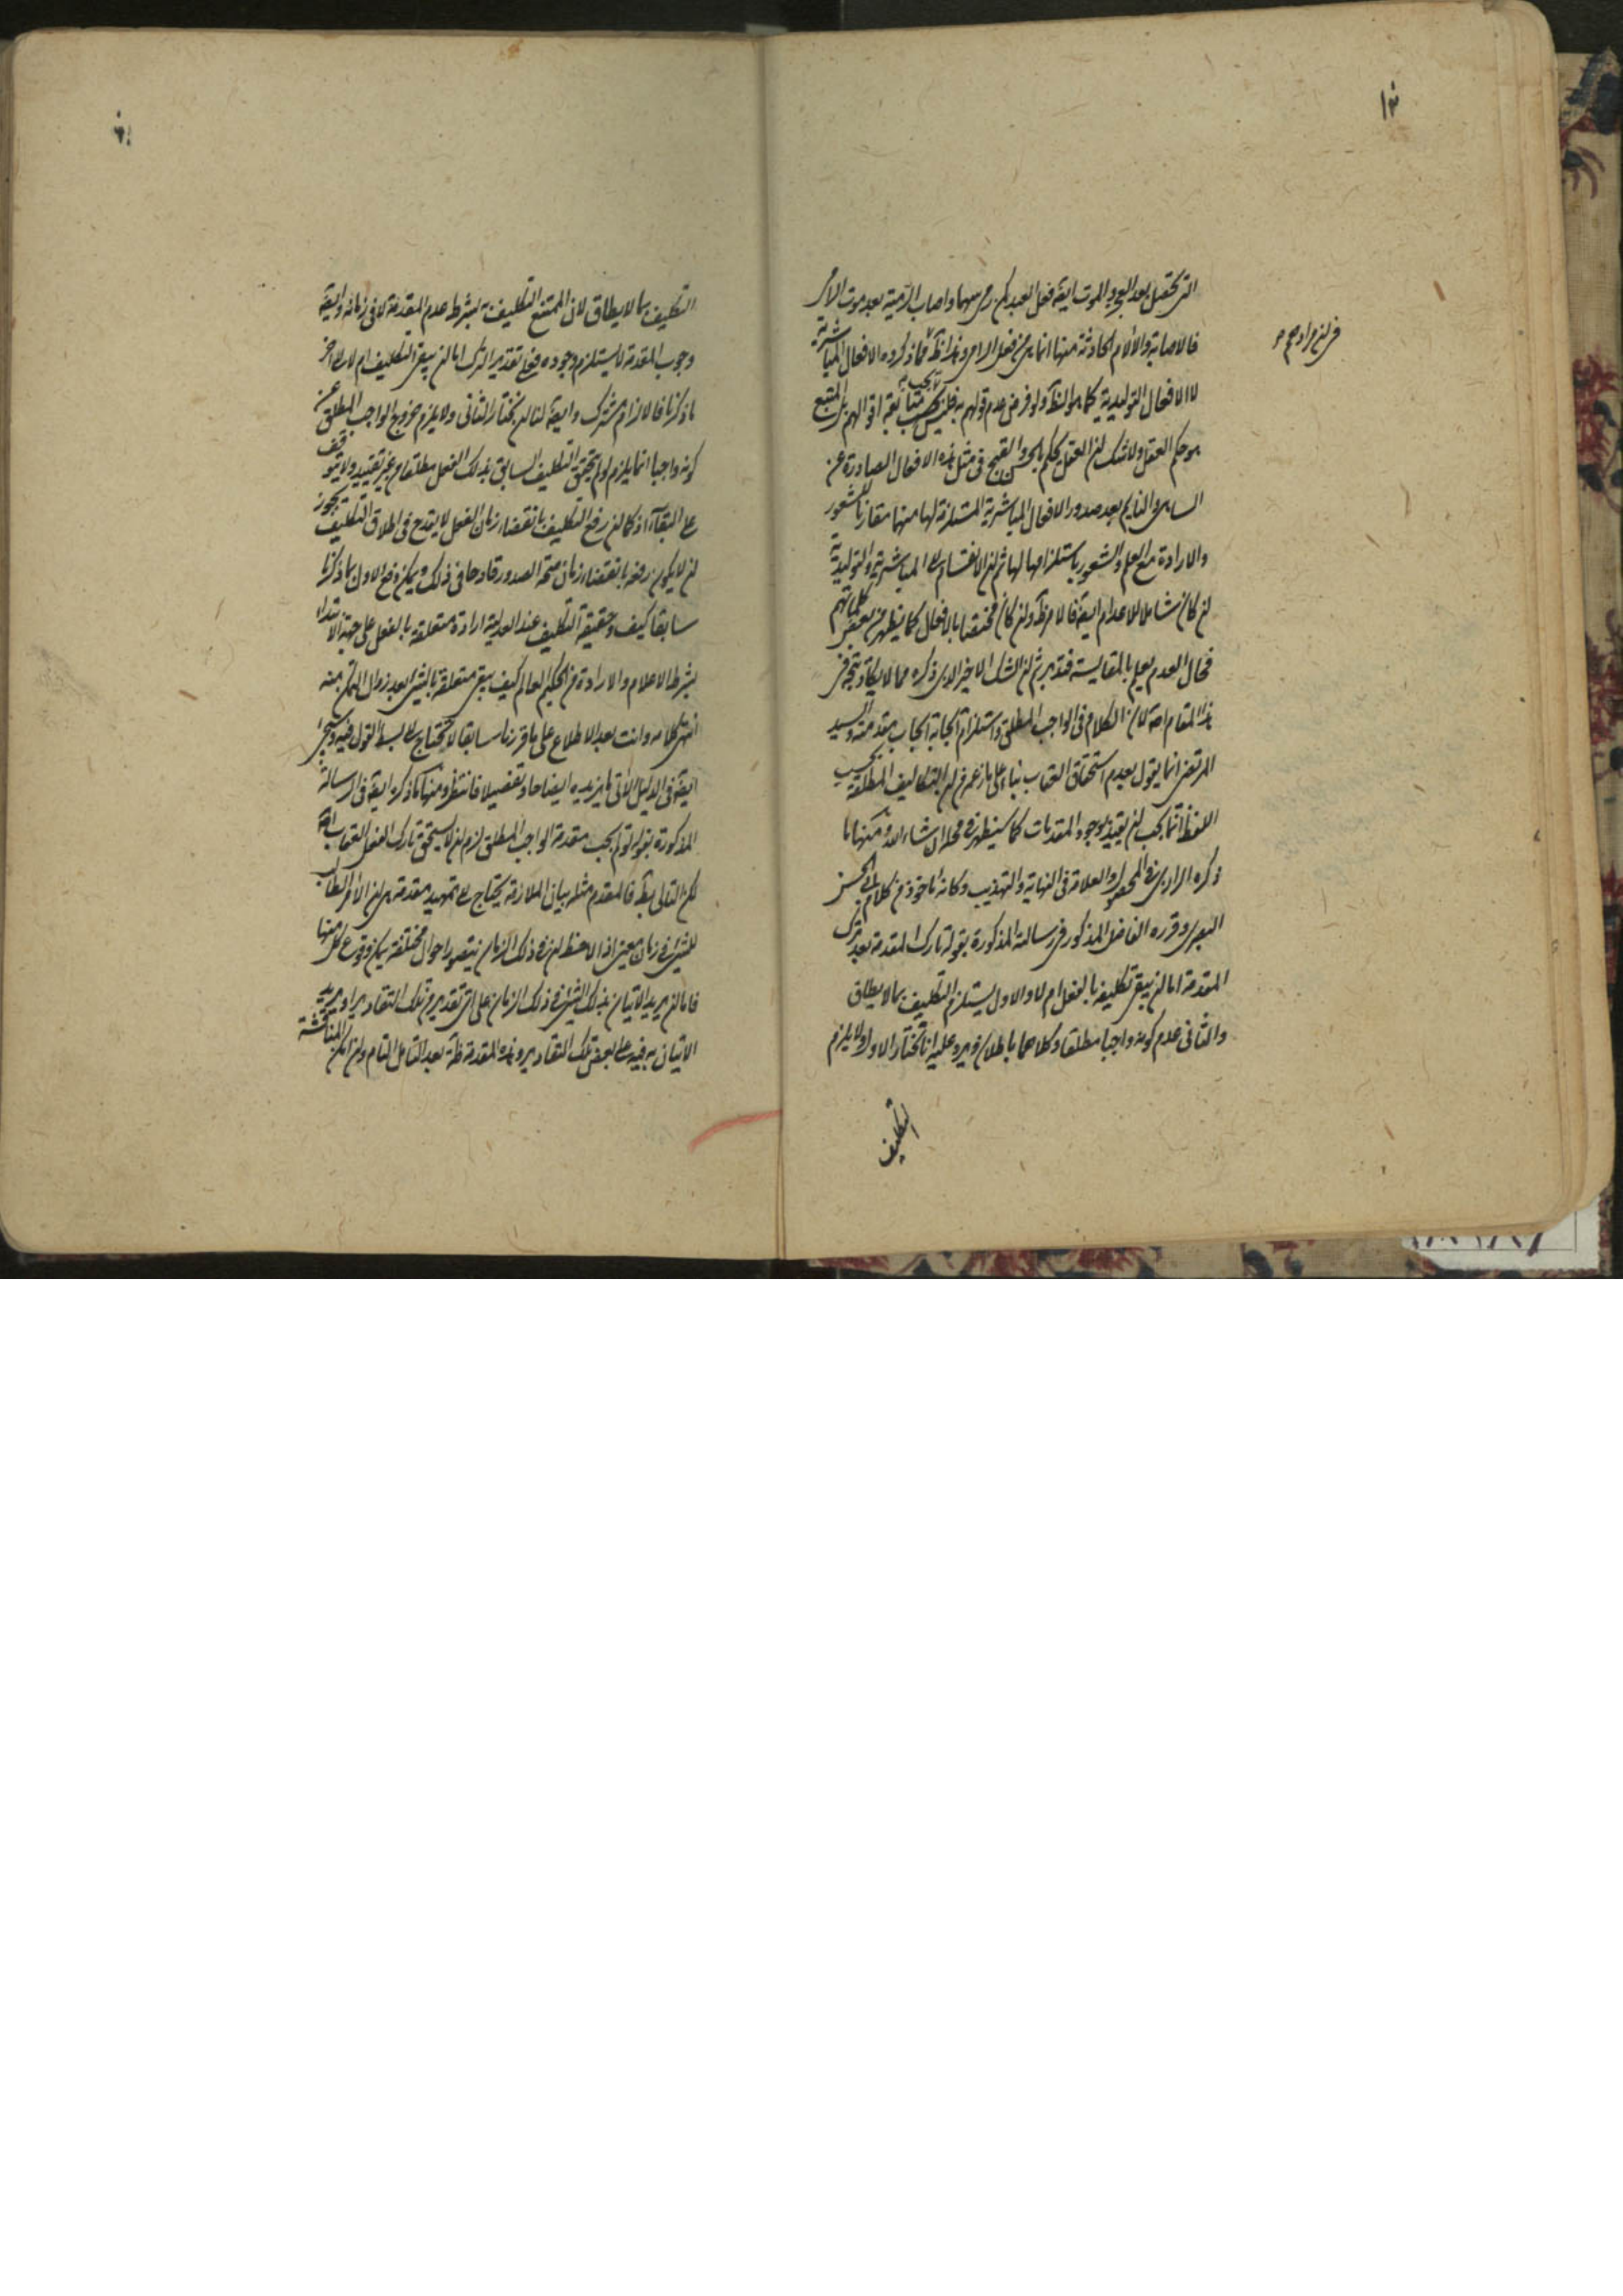 التى تحصل بعد العجز والموت ايضا فعل العبد كمن رمى سهما واصاب الرمية بعد موت الرامى
فالاصابة والآلام الحادثة منها انما هى من فعل الرامى وهذا ظ فما ذكروه الافعال المباشرية
لا الافعال التوليدية كما هو الظ ولو فرض عدم قولهم به فليس يجب متابعة اقوالهم بل المتبع
هو حكم العقل ولا شك ان العقل يحكم بالحسن والقبح فى مثل هذه الافعال الصادرة عن
الساهى والنايم بعد صدور الافعال المباشرية المستلزمة لها منهما مقارنا للشعور
والارادة مع العلم والشعور باستلزامها لها ثم ان الانقسام الى المباشرية والتوليدية
ان كان شاملا للاعدام ايضا فالامر ظ وان كان مختصا بالافعال كما يظهر من بعض كلماتهم
فحال العدم يعلم بالمقايسة فتدبر ثم ان الشك الاخير الذى ذكره مما لا يكاد يتجه فى
هذا المقام اصلا لان الكلام فى الواجب المطلق واستلزام ايجابه ايجاب مقدمته والسيد
المرتضى انما يقول بعدم استحقاق العقاب بناء على ما زعم من ان التكاليف المطلقة بحسب
اللفظ انما يجب ان يقيد بوجود المقدمات كما سيظهر فى محله ان شاء الله ومنها ما
ذكره الرازى فى المحصول والعلامة فى النهاية والتهذيب وكانه ماخوذ من كلام ابى الحسين
البصرى وقرره الفاضل المذكور فى رسالته المذكورة بقوله تارك المقدمة بعد ترك
المقدمة اما ان يبقى تكليفه بالفعل ام لا والاول يستلزم التكليف بما لا يطاق
والثانى عدم كونه واجبا مطلقا وكلاهما باطلان ويرد عليه انا نختار الاول ولا يلزم
التكليف
التكليف بما لا يطاق لان الممتنع التكليف به بشرط عدم المقدمة لا فى زمانه وايضا
وجوب المقدمة لا يستلزم وجوده فعلى تقدير الترك اما ان يبقى التكليف ام لا الى اخر
ما ذكرنا فالالزام مشترك وايضا لنا ان نختار الثانى ولا يلزم خروج الواجب المطلق عن
كونه واجبا انما يلزم لو لم يتحقق التكليف السابق بذلك الفعل مطلقا من غير تقييد ولا يتوقف
على البقاء اذ كما ان رفع التكليف بانقضاء زمان الفعل لا يقدح فى اطلاق التكليف يجوز
ان لا يكون رفعه بانقضاء زمان صحة الصدور قادحا فى ذلك ويمكن دفع الاول بما ذكرنا
سابقا كيف وحقيقة التكليف عند العدلية ارادة متعلقة بالفعل على جهة الابتداء
بشرط الاعلام والارادة من الحكيم العالم كيف يبقى متعلقة بالشئ بعد زوال التمكن منه
انتهى كلامه وانت بعد الاطلاع على ما قررنا سابقا لا تحتاج الى بسط القول فيه وسيجئ
ايضا فى الدليل الاتى ما يزيده ايضاحا وتفصيلا فانتظر ومنها ما ذكره ايضا فى الرسالة
المذكورة بقوله لو لم يجب مقدمة الواجب المطلق لزم ان لا يستحق تارك الفعل العقاب اصلا
لكن التالى بط فالمقدم مثله بيان الملازمة يحتاج الى تمهيد مقدمة هى ان الآمر الطالب
للشئ فى زمان معين اذا لاحظ ان فى ذلك الزمان يتصور احوال مختلفة يمكن وقوع كل منها
فاما ان يريد الاتيان بذلك الشئ فى ذلك الزمان على اى تقدير من تلك التقادير او يريد
الاتيان به فيه على بعض تلك التقادير وهذه المقدمة ظ بعد التامل التام وان امكن المناقشة